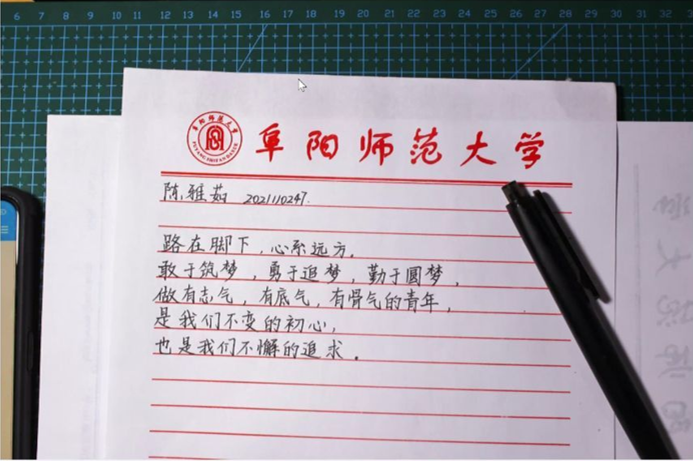 6 7 8 9 10 11 12 13 14 15 16 17 18 19 20 21 22 23 24 25 26 27 28 29 30 31 32
阜阳师范大学
阜阳师范大学
陈雅茹 202110247.
路在脚下，心系远方。
敢于筑梦，勇于追梦，勤于圆梦，
做有志气，有底气，有骨气的青年，
是我们不变的初心，
也是我们不懈的追求。